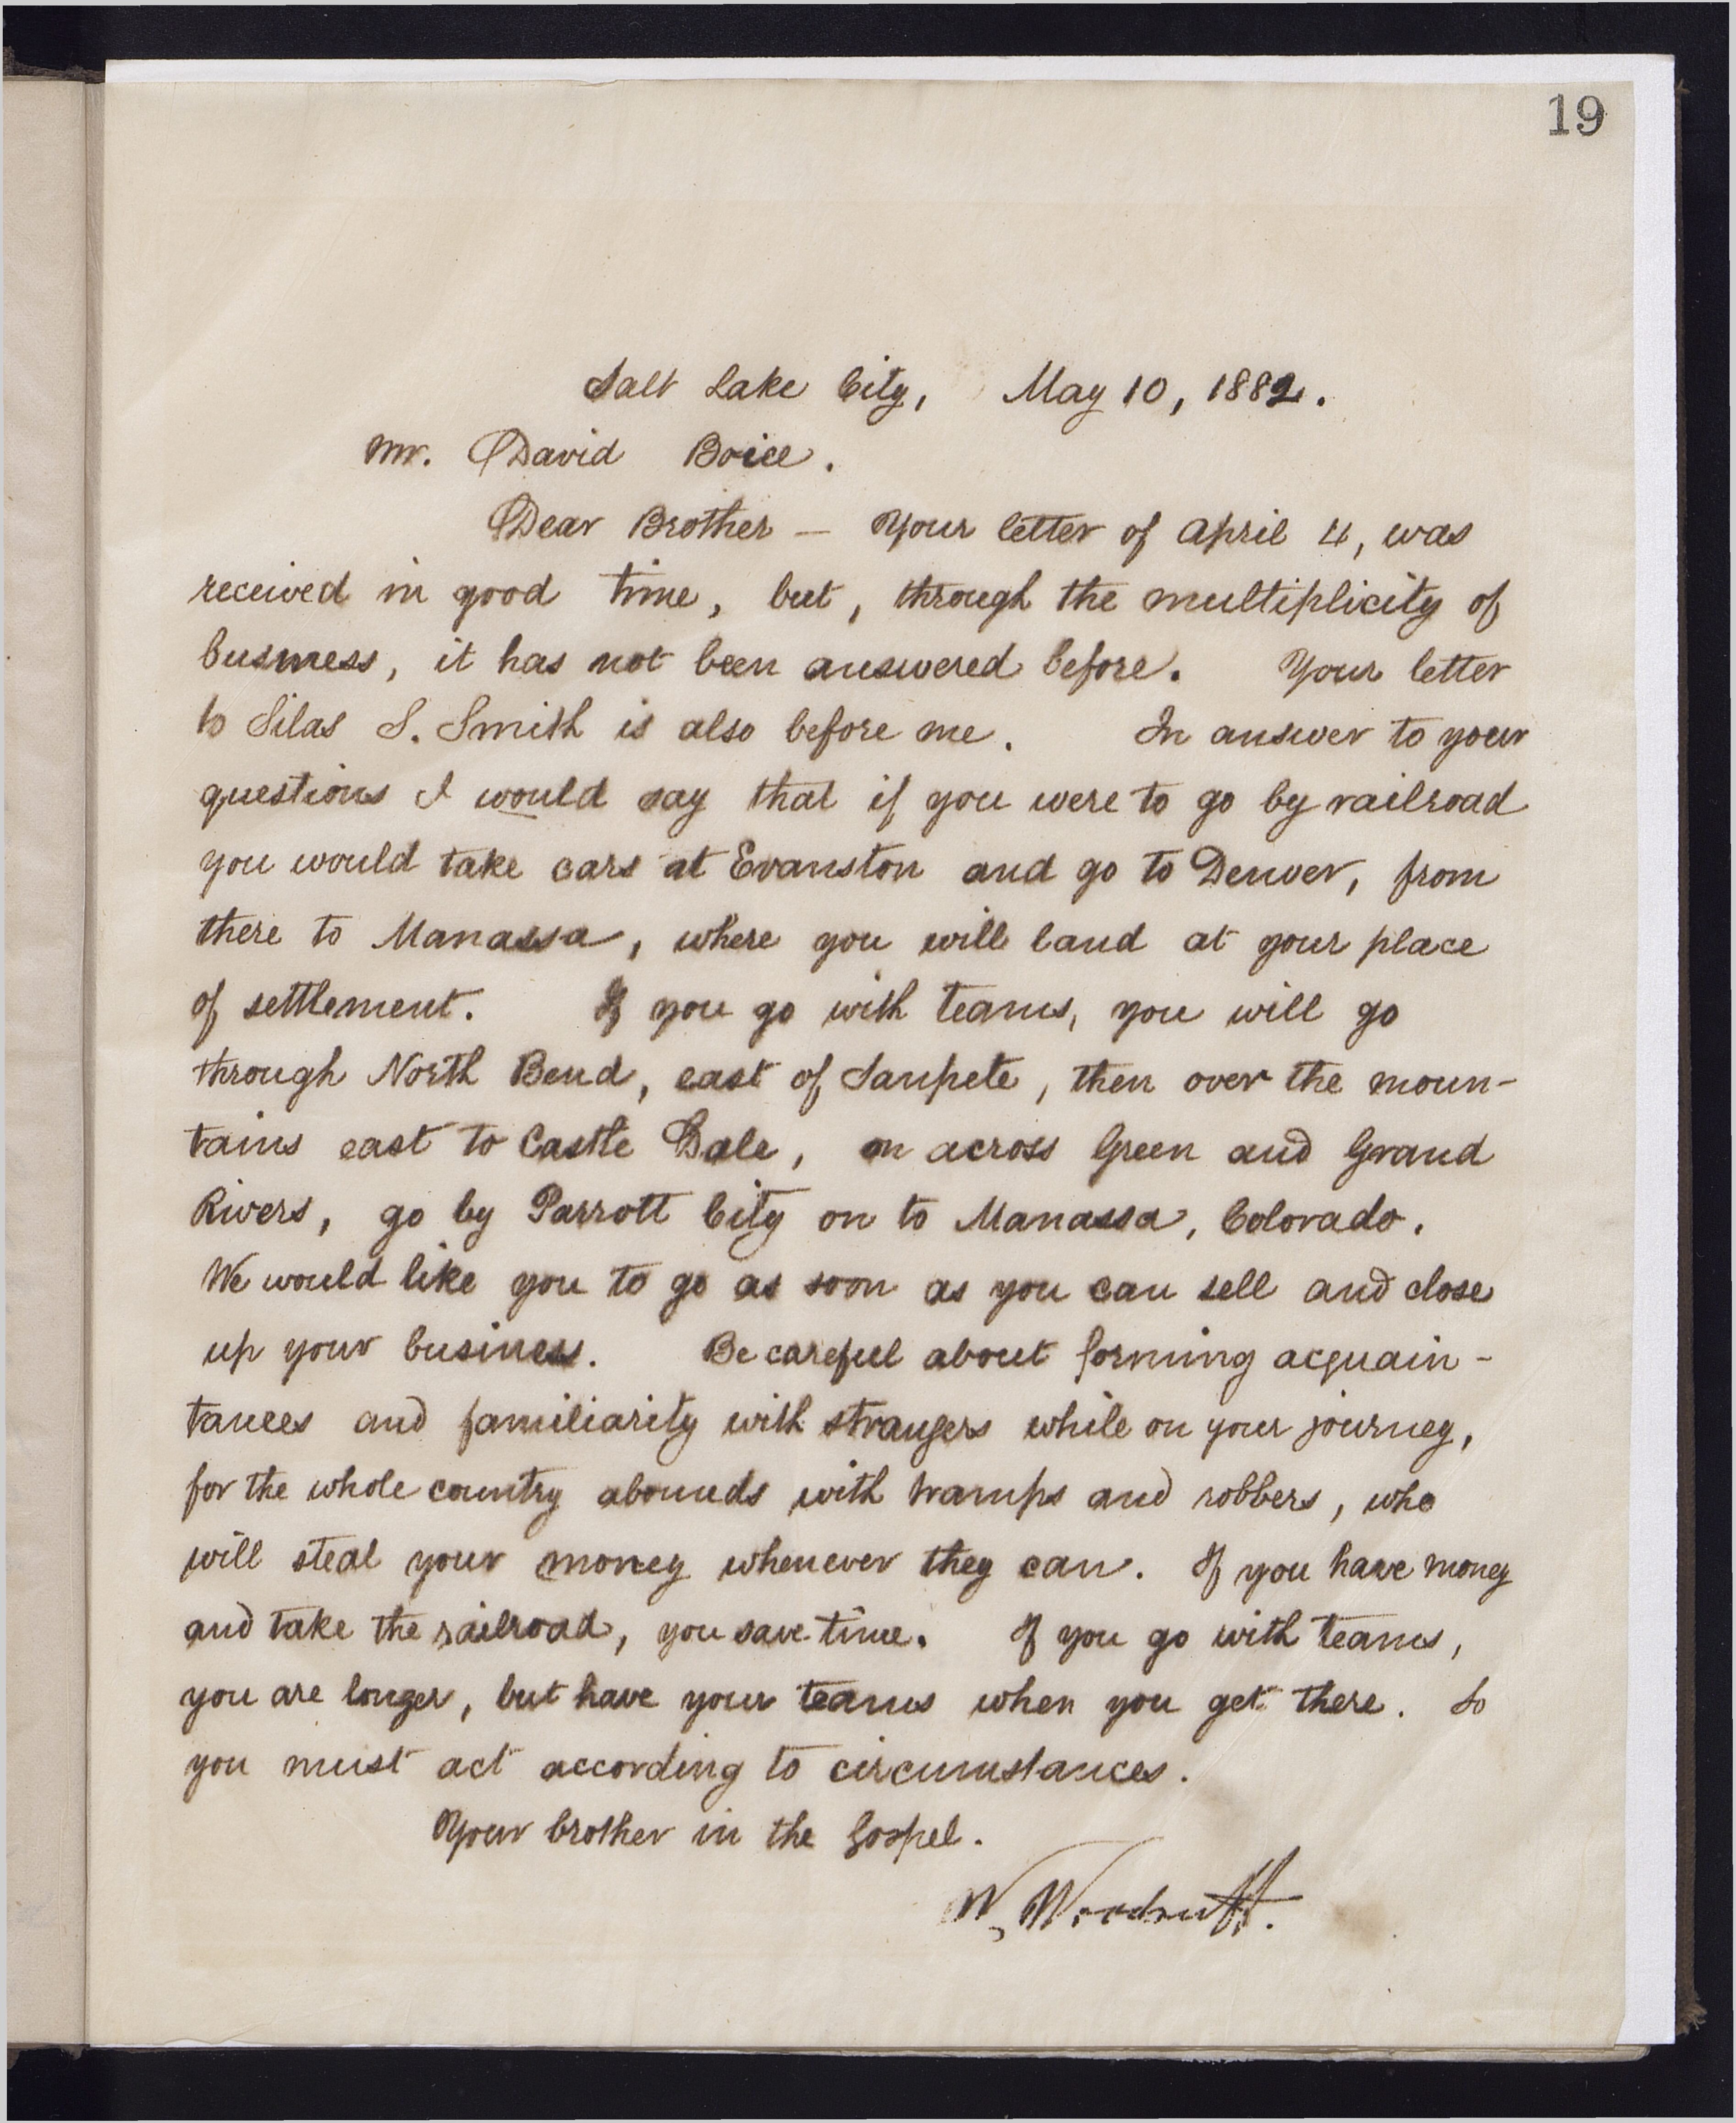 19
Salt Lake City, May 10, 1882.
Mr. David Boice.
Dear Brother — Your letter of April 4, was
received in good time, but, through the multiplicity of
business, it has not been answered before. Your letter
to Silas S. Smith is also before me. In answer to your
questions I would say that if you were to go by railroad
you would take cars at Evanston and go to Denver, from
there to Manassa, where you will land at your place
of settlement. If you go with teams, you will go
through North Bend, east of Sanpete, then over the moun-
tains east to Castle Dale, on across Green and Grand
Rivers, go by Parrott City on to Manassa, Colorado.
We would like you to go as soon as you can sell and close
up your business. Be careful about forming acquain-
tances and familiarity with strangers while on your journey,
for the whole country abounds with tramps and robbers, who
will steal your money whenever they can. If you have money
and take the railroad, you save time. If you go with teams,
you are longer, but have your teams when you get there. So
you must act according to circumstances.
Your brother in the Gospel.
W. Woodruff.